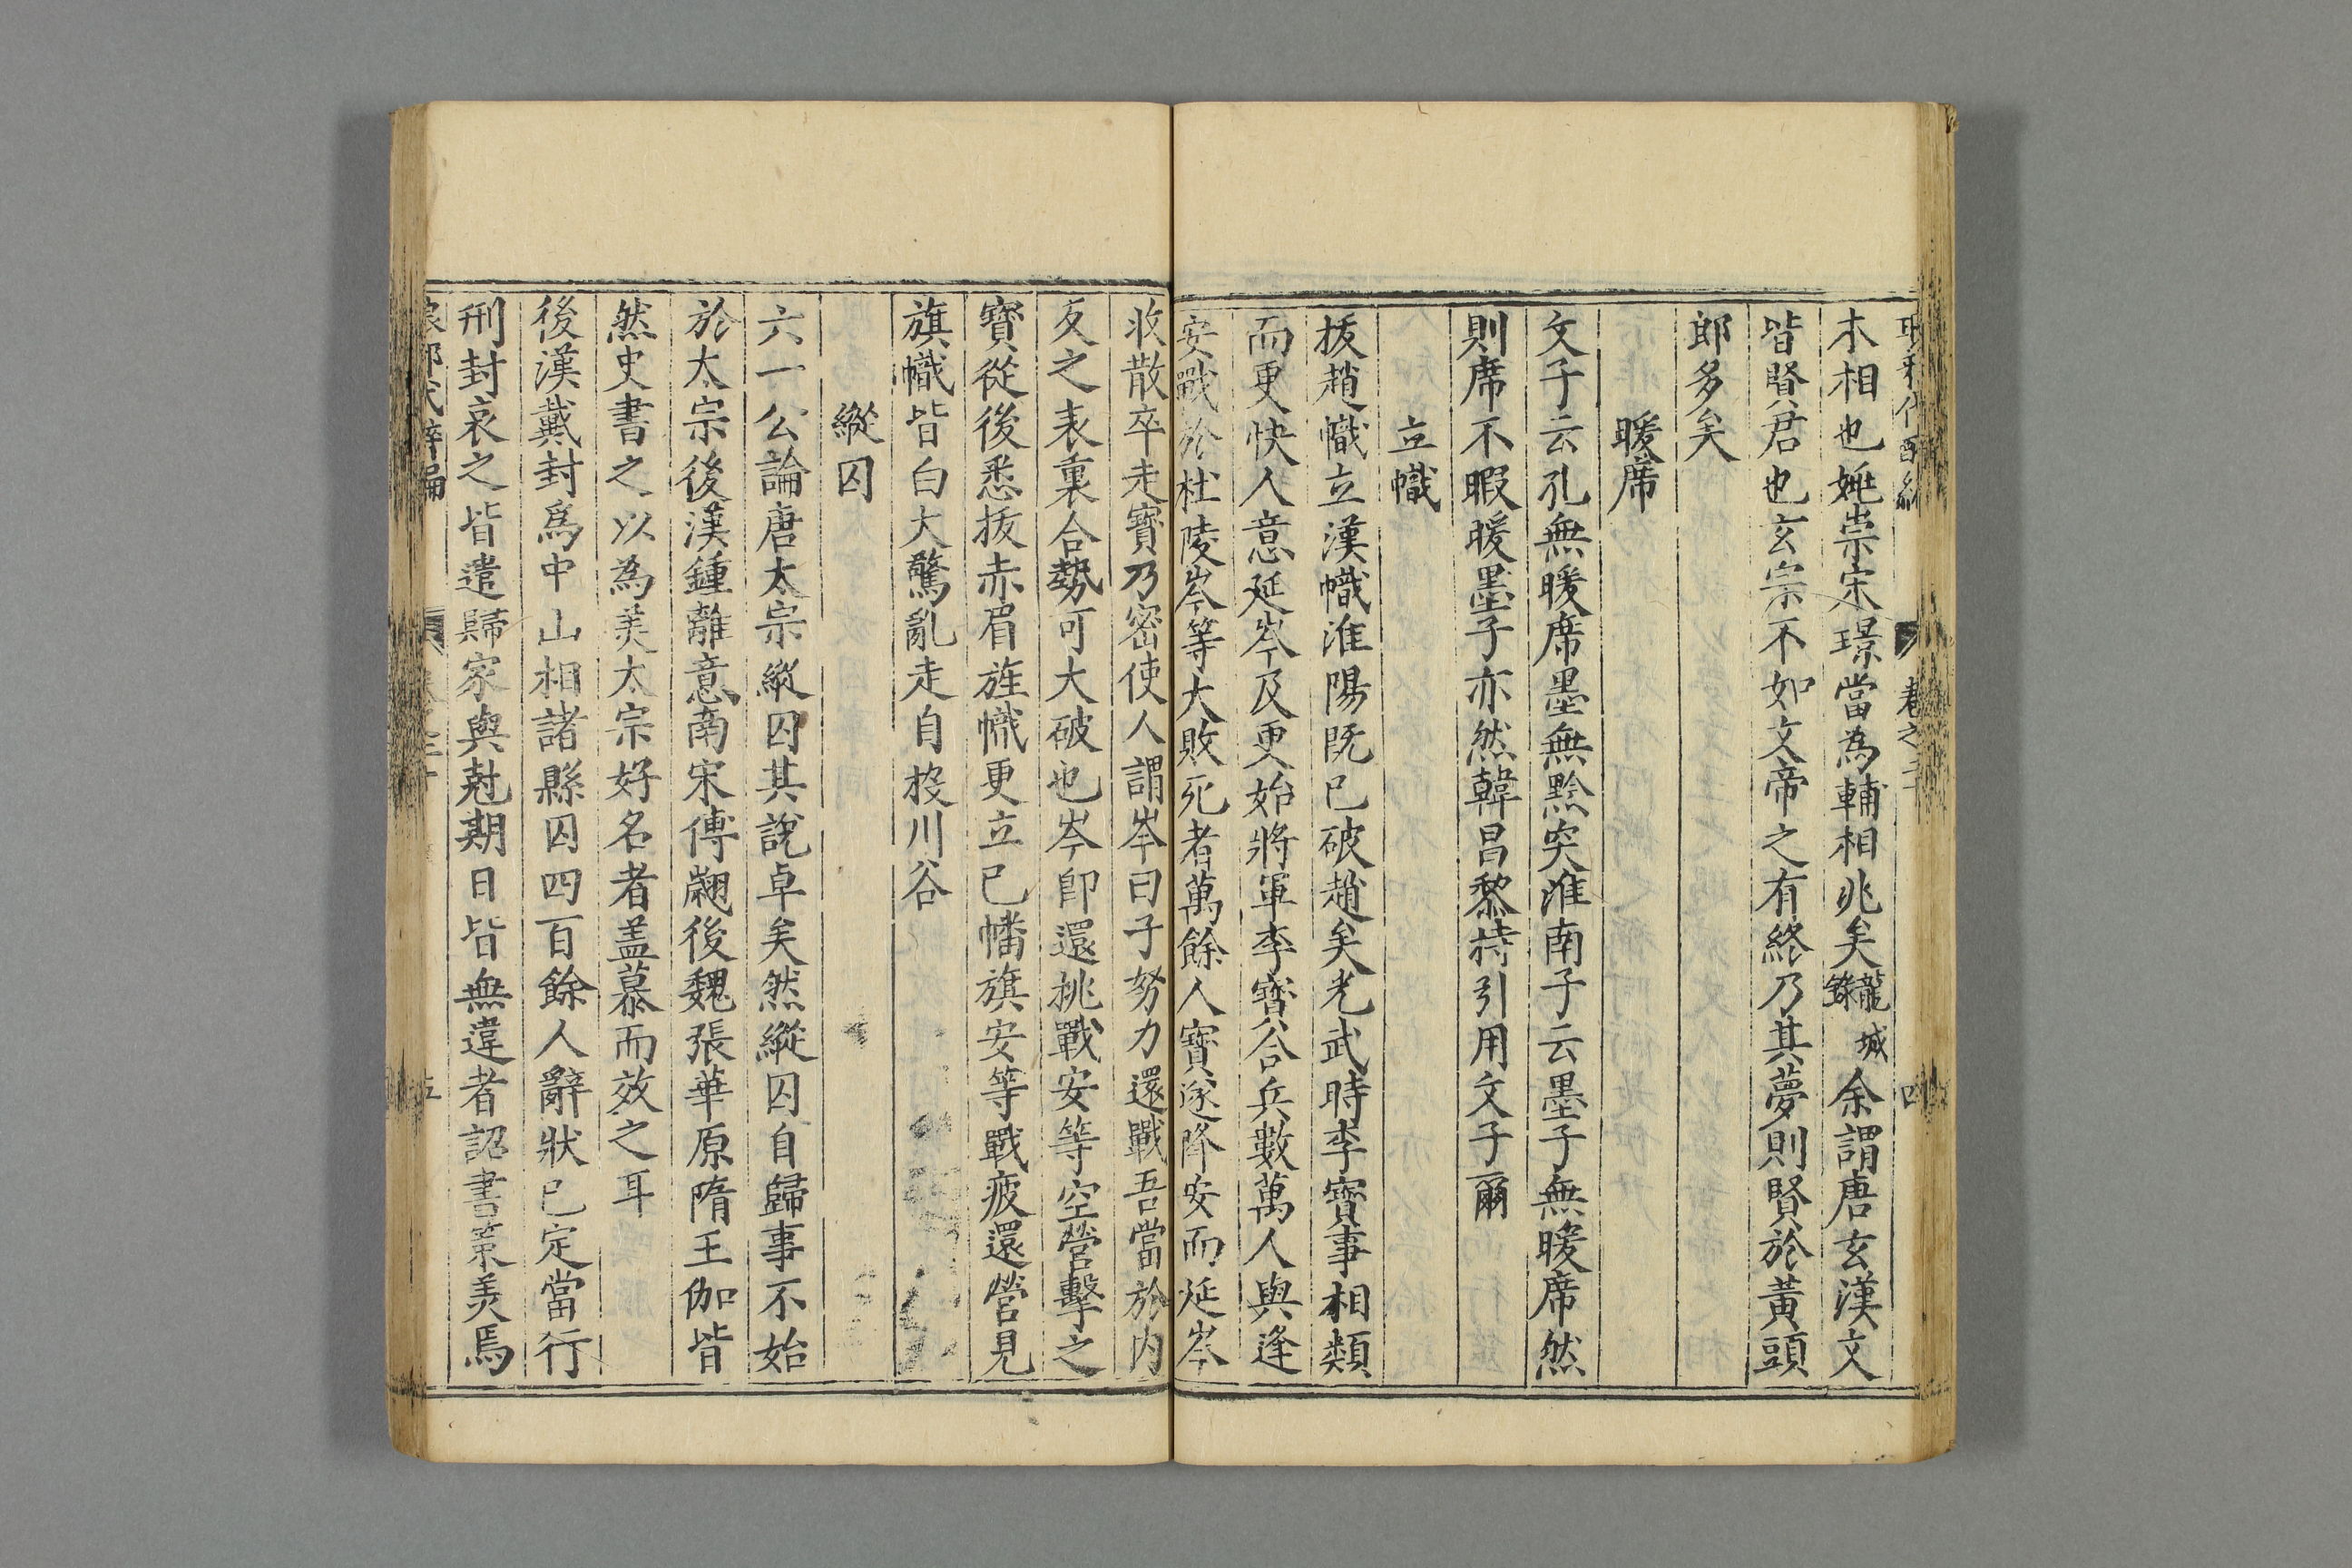 木相也姚崇宋璟當為輔相兆矣龍城錄余謂唐玄漢文
皆賢君也玄宗不如文帝之有終乃其夢則賢於黃頭
郎多矣
暖席
文子云孔無暖席墨無黔突淮南子云墨子無暖席然
則席不暇暖墨子亦然韓昌黎特引用文子爾
立幟
拔趙幟立漢幟淮陽既已破趙矣光武時李寶事相類
而更快人意延岑及更始將軍李寶合兵數萬人與逢
安戰於杜陵岑等大敗死者萬餘人寶遂降安而延岑
收散卒走寶乃密使人謂岑曰子努力還戰吾當於內
反之表裏合勢可大破也岑即還挑戰安等空營擊之
寶從後悉拔赤眉旌幟更立已幡旗安等戰疲還營見
旗幟皆白大驚亂走自投川谷
縱囚
六一公論唐太宗縱囚其說卓矣然縱囚自歸事不始
於太宗後漢鍾離意南宋傅翽後魏張華原隋王伽皆
然史書之以為美太宗好名者盖慕而效之耳
後漢戴封為中山相諸縣囚四百餘人辭狀已定當行
刑封哀之皆遣歸家與尅期日皆無違者詔書策美焉